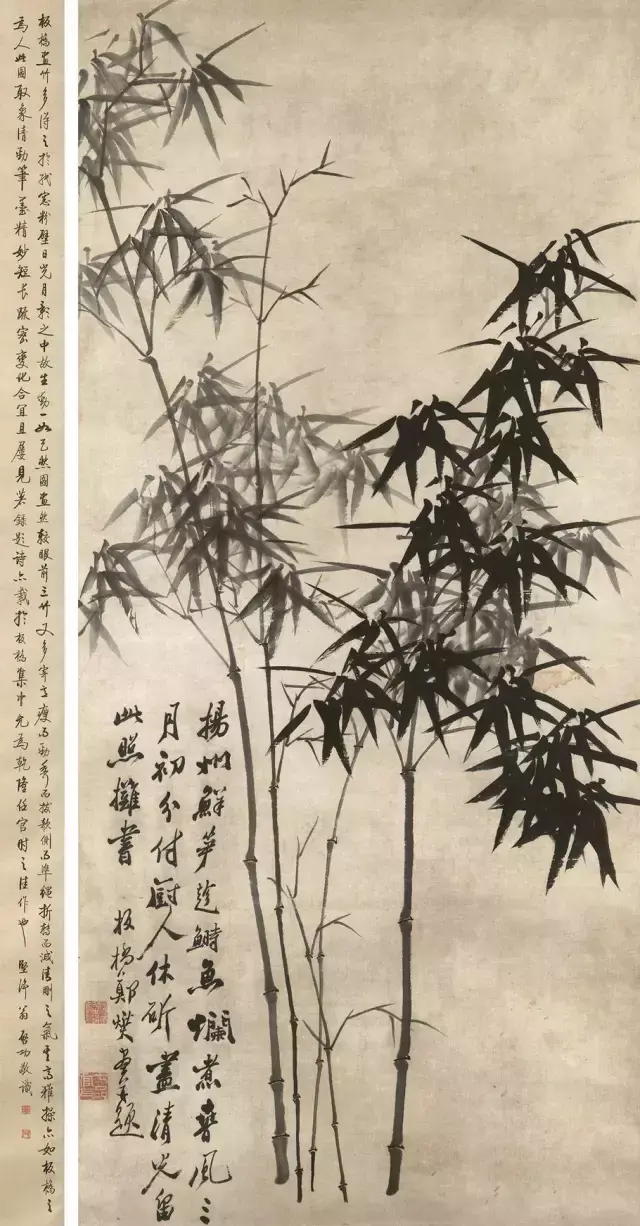 揚州鮮笋趁鰣魚爛煮春風三
月初分付厨人休斫盡清光留
此照攤書 板橋鄭燮畫并題
板橋畫竹多得之於紙窓粉壁日光月影之中故生動一如已然圖畫然較眼前之竹又多 瘦而勁秀而拔欹側而準繩折轉而 清剛之氣 高雅操亦如板橋之
為人此圖取象清勁筆墨精妙短長疎密變化合宜且屢見著錄題詩亦載於板橋集中尤為乾隆任官時之佳作也 堅淨翁啓功敬識